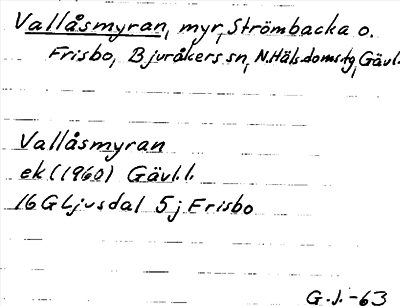 Vallåsmyran, myr, Strömbacka o.
Frisbo, Bjuråkers sn, N.Häls.domstg, Gävl.
Vallåsmyran
ek (1960) Gävl.l.
16G Ljusdal 5j Frisbo
G.J.-63